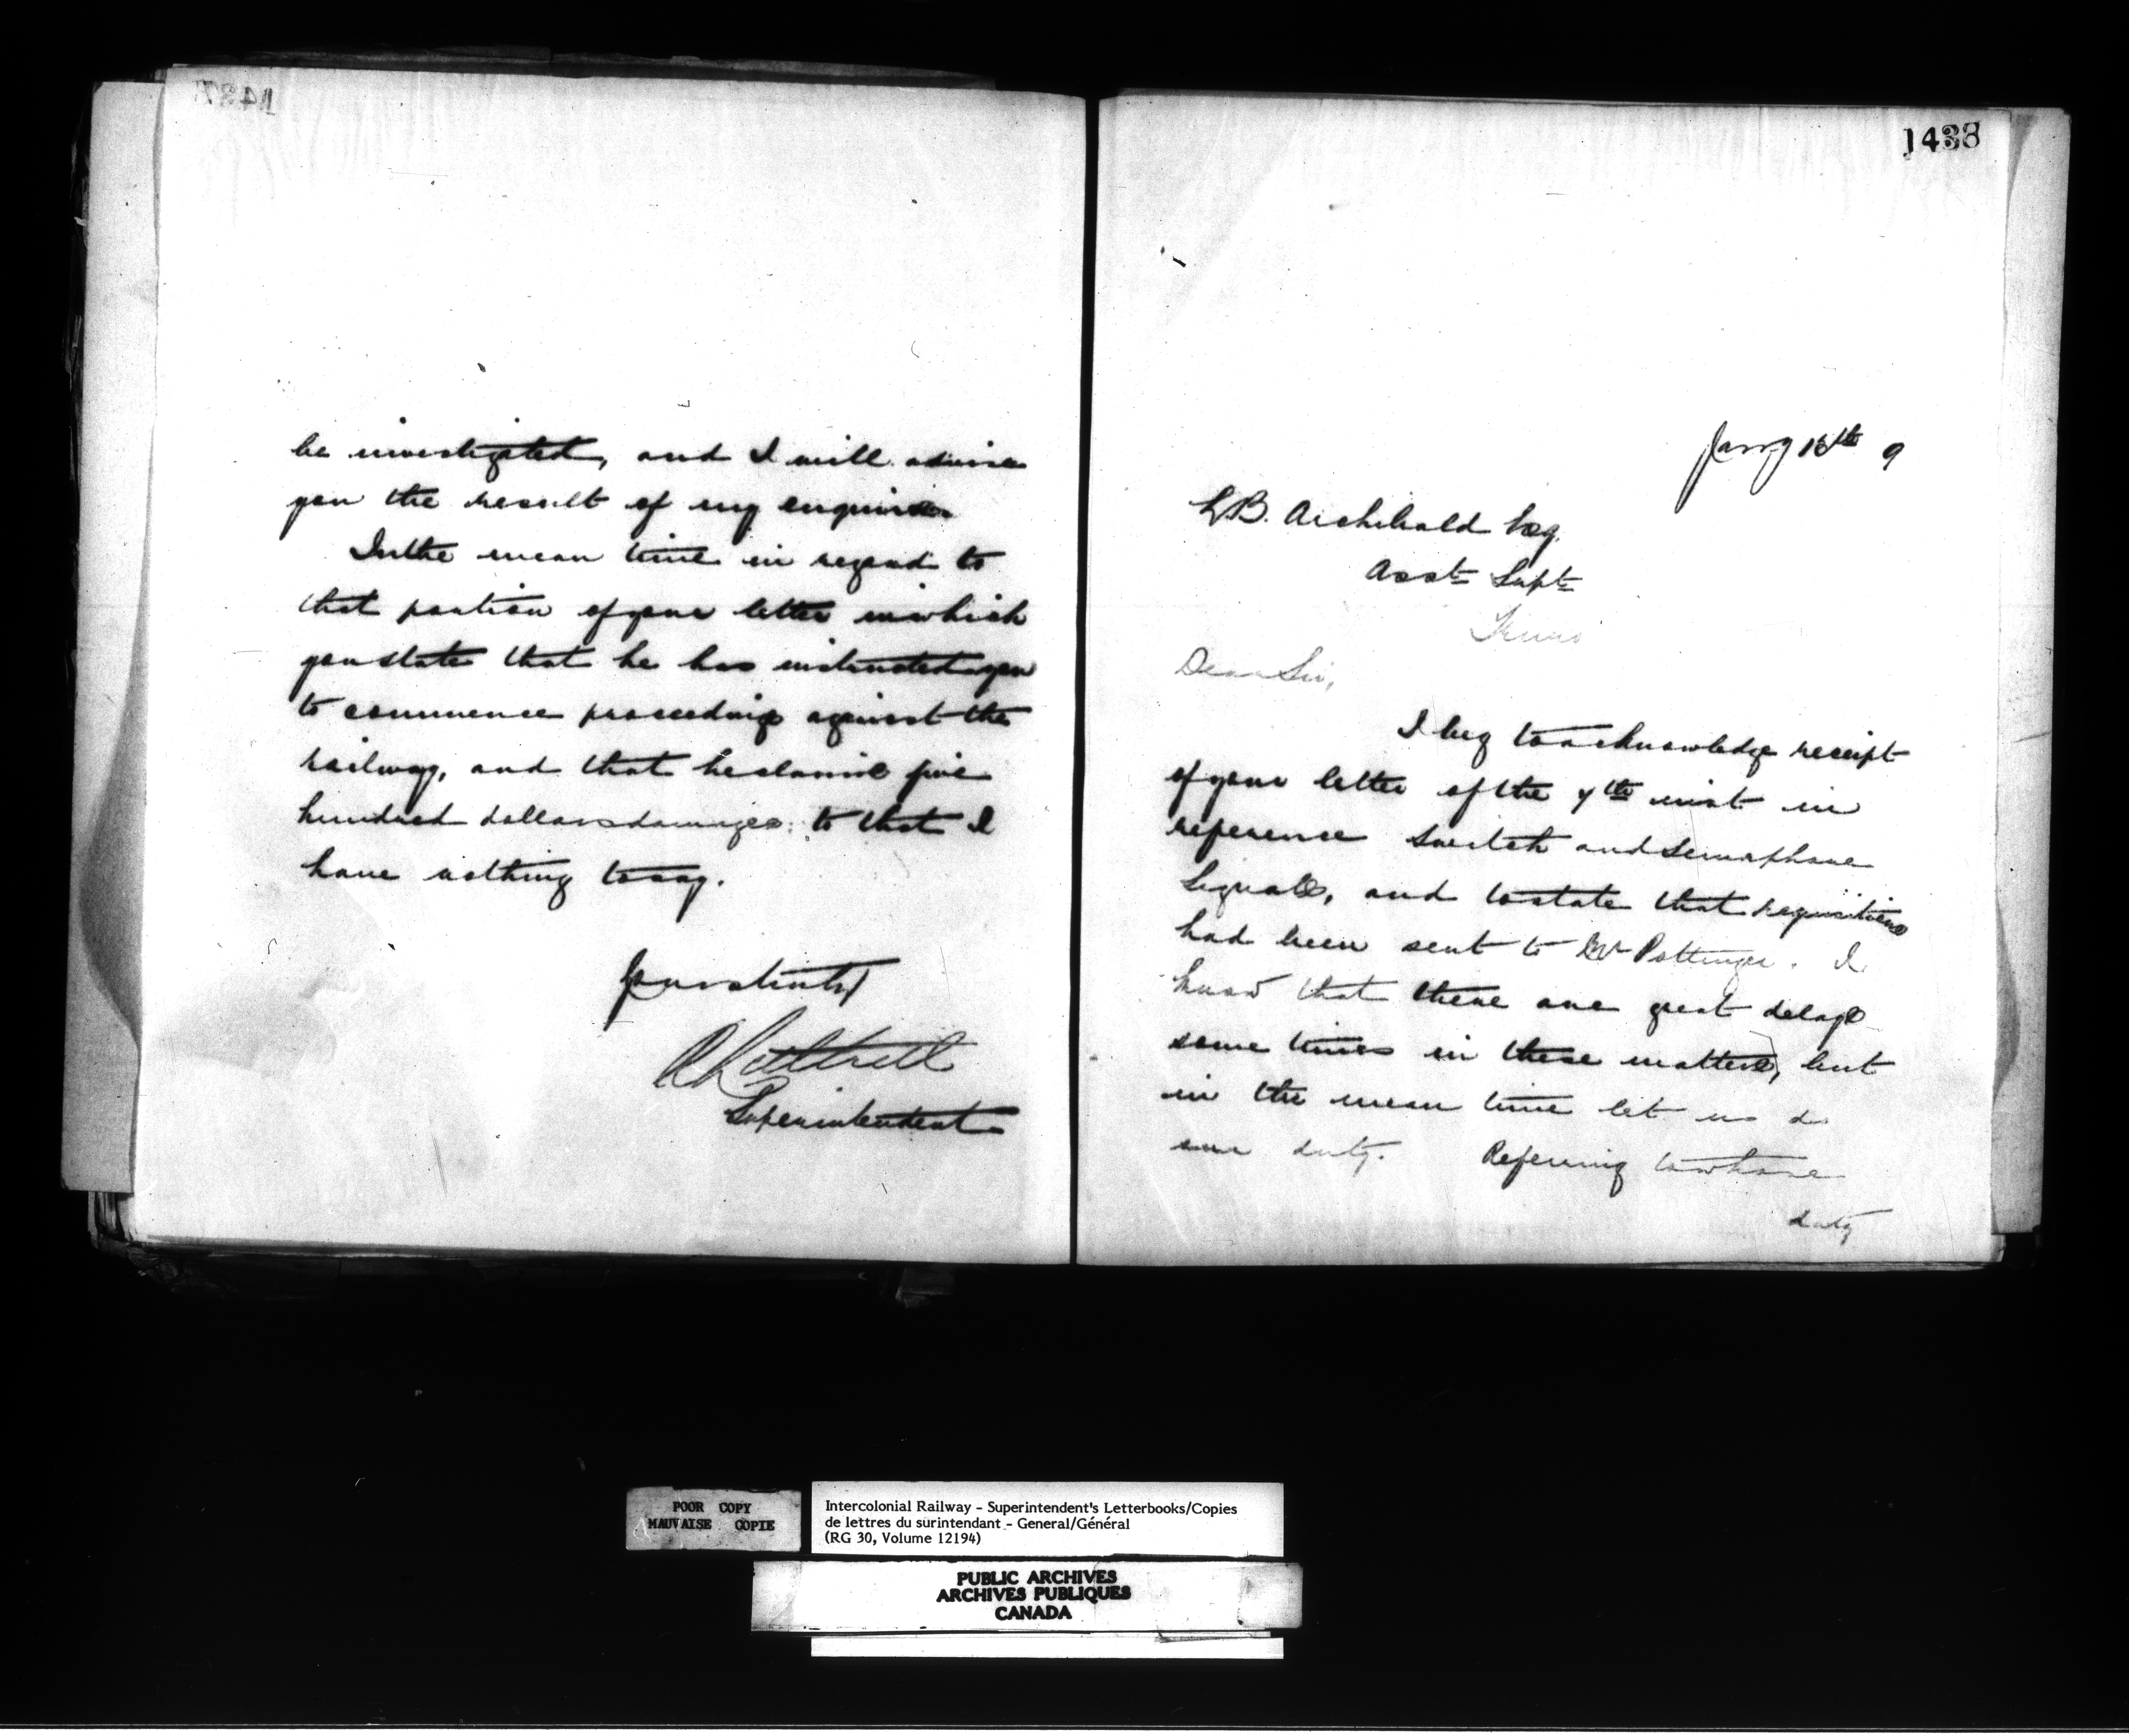 1437
be investigated, and I will advise
you the result of my enquiries.
In the mean time in regard to
that portion of your letter in which
you state that he has instructed you
to commence proceedings against the
railway, and that he claims five
hundred dollars damages; to that I
have nothing to say.
Yours truly
Superintendent
1438
Jany 13th 9
Y.B. Archibald Esq.
Asst Supt
Truro
Dear Sir,
I beg to acknowledge receipt
of your letter of the 7th inst in
reference Switch and Semaphore
Signals, and to state that requisitions
had been sent to Mr Pottinger. I
know that there are great delays
some times in these matters, but
in the mean time let us do
our duty. Referring to whose
duty
POOR COPY
MAUVAISE COPIE
Intercolonial Railway - Superintendent's Letterbooks/Copies
de lettres du surintendant - General/Général
(RG 30, Volume 12194)
PUBLIC ARCHIVES
ARCHIVES PUBLIQUES
CANADA